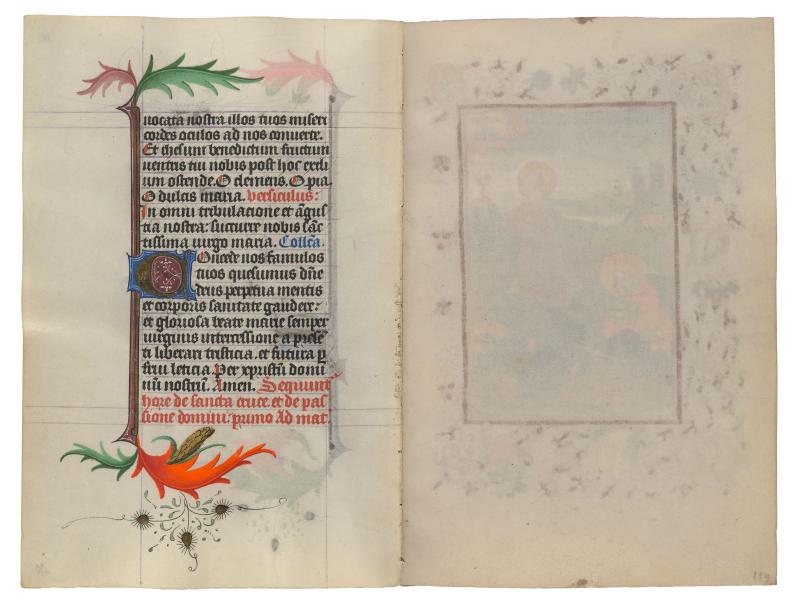 uocata nostra illos tuos miseri
cordes oculos ad nos conuerte.
Et ihesum benedictum fructum
uentris tui nobis post hoc exili
um ostende. O clemens. O pia.
O dulcis maria. versiculus:
In omni tribulacione et ãgus
tia nostra: succurre nobis sãc
tissima uirgo maria. Collcã.
Oncede nos famulos
tuos quesumus dñe
deus perpetua mentis
et corporis sanitate gaudere:
et gloriosa beate marie semper
uirginis intercessione a prese
ti liberari tristicia. et futura p
frui leticia. Per xpristũ domi
nũ nostrũ. Amen. Sequunt
hore de sancta cruce. et de pas
sione domini. primo Ad mat.
119